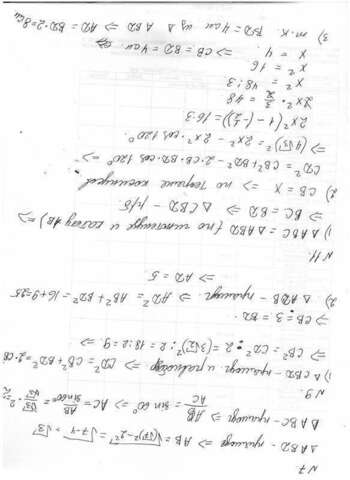 N 7
Δ ABD - прямоуг. ⇒ AB = √((√7)²-2²) = √7-4 = √3
Δ ABC - прямоуг ⇒ AB/AC = sin 60° ⇒ AC = AB/sin60° = √3/(√3/2) = 2
N 9.
1) Δ CBD - прямоуг. и равнобедр ⇒ CD² = CB² + BD² = 2·CB
⇒ CB² = CD² : 2 = (3√2)² : 2 = 18 : 2 = 9 ⇒
⇒ CB = 3 = BD.
2) Δ ADB - прямоуг. ⇒ AD² = AB² + BD² = 16 + 9 = 25
⇒ AD = 5
N 11.
1) Δ ABC = Δ ABD (по гипотенузе и катету AB) ⇒
⇒ BC = BD ⇒ Δ CBD - р/б
2) CB = x ⇒ по теореме косинусов
CD² = CB² + BD² - 2·CB·BD·cos 120° ⇒
⇒ (4√3)² = 2x² - 2x²·cos 120°
2x² (1-(-1/2)) = 16·3
2x² · 3/2 = 48
x² = 48 : 3
x² = 16
x = 4 ⇒ CB = BD = 4 см
3) т.к. BD = 4 см из Δ ABD ⇒ AD = BD · 2 = 8 см